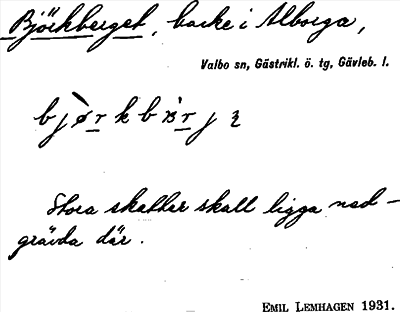 Björkberget, backe i Alborga,
Valbo sn, Gästrikl. ö. tg, Gävleb. l.
Stora skatter skall ligga ned-
grävda där.
EMIL LEMHAGEN 1931.